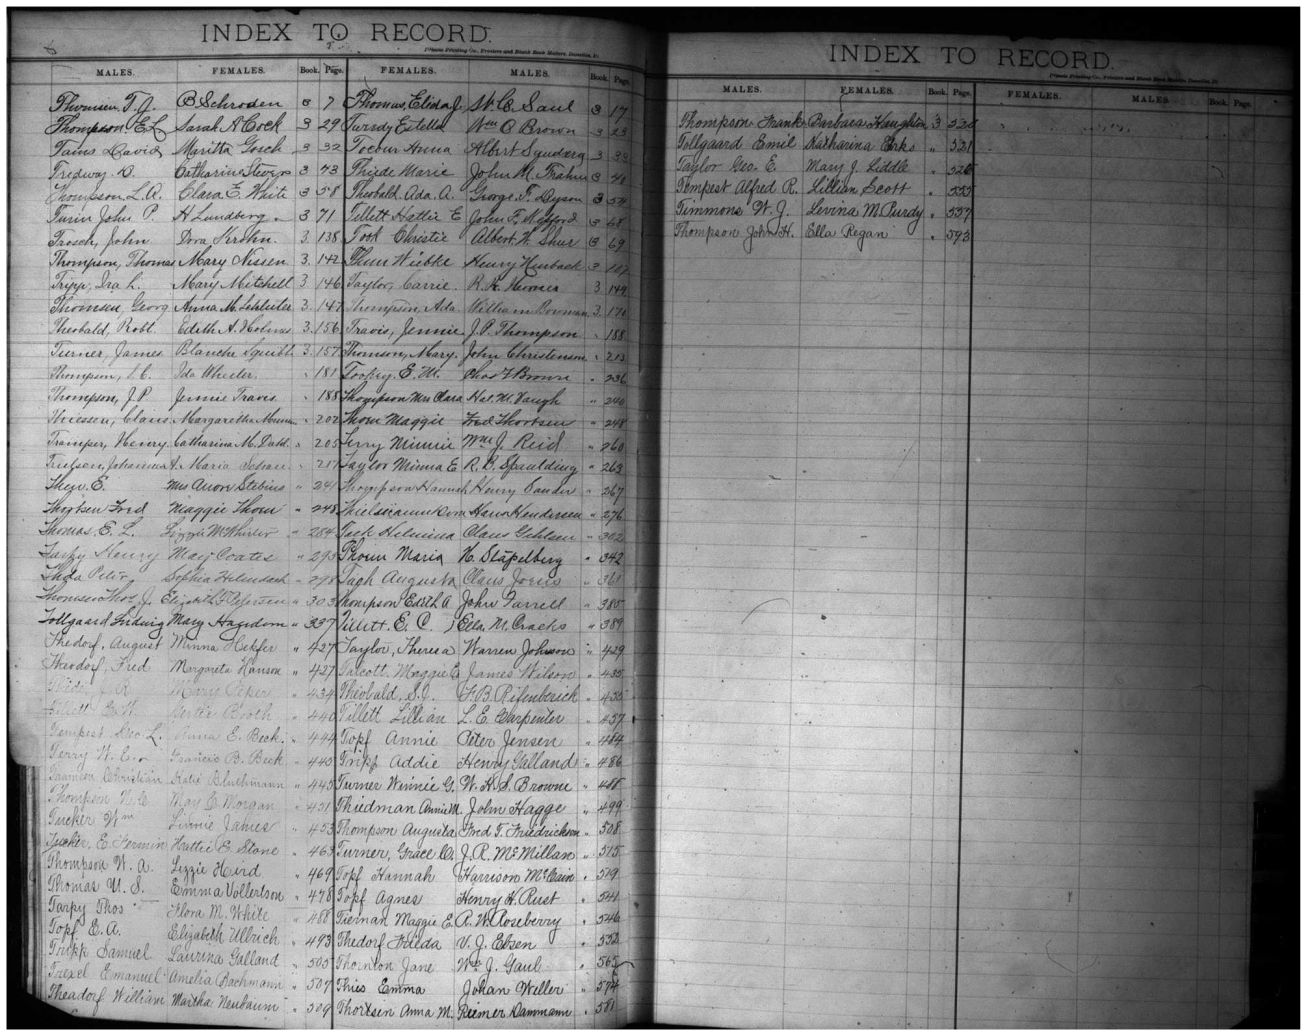 INDEX TO RECORD.
MALES. FEMALES. Book. Page. FEMALES. MALES. Book. Page.
Thomsen, T. J. B Schroden 3 7 Thomas, Elida J. W. C. Saul 3 17
Thompson E L Sarah A Cock 3 29 Turndy Estella Wm C Brown 3 23
Tams David Maritta Gosch 3 32 Tocour Anna Albert 3
Tredway D. Catharine Stevens 3 43 Thiede Marie John M. Frahm 3 40
Thompson, L. A. Clara E. White 3 58 Theobald. Ada. A. George. T. Dyson 3 54
Turin John P. A Lundberg 3 71 Tillett Hattie E John F. Mefford 3 68
Trosch, John Dora Krohn. 3. 138 Tock Christie Albert W. Shur 3 69
Thompson, Thomas Mary Nissen 3. 142 Thun Wiebke Henry 3 107
Tripp, Ira L. Mary Mitchell 3. 146 Taylor, Carrie. R. K. 3 149
Thomsen, Georg Anna M. Schlueter 3. 147 Thompson, Ada. William Bowman 3. 170
Theobald, Robt Edith A. Holmes 3. 156 Travis, Jennie J. P. Thompson " 188
Turner, James Blanche Squibb 3. 157 Thomson, Mary. John Christenson " 213
Thompson, S. C. Ida Wheeler. " 181 Tookey. E. M. Chas F Brown " 236
Thompson, J. P. Jennie Travis " 188 Thompson Mrs Clara Hal. M. Vaugh " 240
Thiessen, Claus Margaretha " 202 Thom Maggie Fred Thortsen " 248
Tramper, Henry. Catharina M. Dahl. " 205 Terry Minnie Wm J. Reid " 260
Johannes A. Maria " 217 Taylor Minna E R. B. Spaulding " 263
E. Mrs Stebins " 241 Thompson Hannah Henry Sander " 267
Thortsen Fred Maggie Thom " 248 Hans Henderson " 276
Thomas. E. L. Lizzie McWhirter " 284 Tack Helmina Claus Gehlsen " 302
Tarpy Henry May Coates " 293 Thoen Maria H. Stapelberg " 342
Thoda Peter Sophia " 298 Tagh Augusta Claus Jorns " 361
Thomsen Thos. J. Elizabeth Petersen " 303 Thompson Edith A John Farrell " 385
Tollgaard Ludwig Mary Hagedorn " 337 Tillett. E. C. Ella M. Crachs " 389
Thedorf, August Minna Hepfer " 427 Taylor, Theresa Warren Johnson " 429
Theodorf, Fred Margareta Hanson " 427 Talcott, Maggie E James Wilson " 435
J R Mary Peper " 434 Theobald, S. J. F. B. Rifenberick " 455
Tillett E. W. Bertie Broth " 440 Tillett Lillian L. E. Carpenter " 457
Tempest Geo L. Anna E. Beck. " 444 Topf Annie Peter Jensen " 484
Terry W. E. Francis B. Buck " 440 Tripp Addie Henry Galland " 486
Christian Katie Bluthmann " 445 Turner Winnie G. W. H. S. Browne " 488
Thompson N. C. May E. Morgan " 451 Thiedman Annie M. John Hagge " 499
Tucker Wm Linnie James " 453 Thompson Augusta Fred T. Friedrickson " 508
Tucker, E. Fermin Hattie E. Stone " 463 Turner, Grace O. J. R. McMillan " 515
Thompson W. A. Lizzie Heird " 469 Topf Hannah Harrison McCain " 519
Thomas U. S. Emma Vollertson " 478 Topf Agnes Henry H. Rust " 544
Tarpy Thos Flora M. White " 488 Tiernan Maggie E. R. W. Roseberry " 546
Topf E. A. Elizabeth Ulbrich " 493 Thedorf Frieda V. J. Ebsen " 552
Tripp Samuel Laurina Galland " 505 Thornton Jane Wm J. Gaul " 565
Trexel Emanuel Amelia Bachmann " 507 Thies Emma Johan Weller " 574
Theadorf William Martha Neubaum " 509 Thortsen Anna M. Riemer Dammann " 581
INDEX TO RECORD.
MALES. FEMALES. Book. Page. FEMALES. MALES. Book. Page.
Thompson Frank Barbara Houghton 3 520
Tollgaard Emil Katharina Erks " 521
Taylor Geo. E. Mary J. Liddle " 526
Tempest Alfred R. Lillian Scott " 555
Timmons W. J. Levina M. Purdy " 557
Thompson John H. Ella Regan " 593